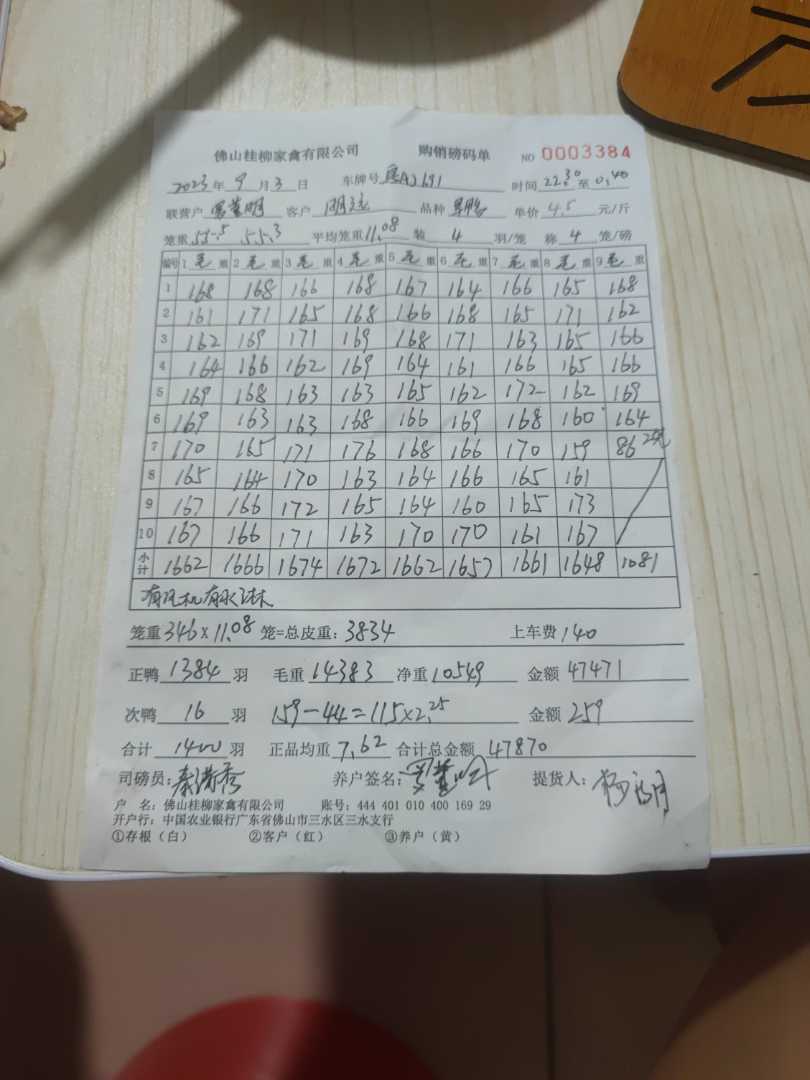 佛山桂柳家禽有限公司 购销磅码单 NO 0003384
2023年 9月 3日 车牌号 时间 22:30 至 0:40
联营户 客户 品种 单价 4.5 元/斤
笼重 55.5 55.3 平均笼重 11.08 装 4 羽/笼 称 4 笼/磅
编号 1 毛 重 2 毛 重 3 毛 重 4 毛 重 5 毛 重 6 毛 重 7 毛 重 8 毛 重 9 毛 重
1 168 168 166 168 167 164 166 165 168
2 161 171 165 168 166 168 165 171 162
3 162 169 171 169 168 171 163 165 166
4 164 166 162 169 164 161 166 165 166
5 169 168 163 163 165 162 172 162 169
6 169 163 163 168 166 169 168 160 164
7 170 165 171 176 168 166 170 159 86 2笼
8 165 164 170 163 164 166 165 161
9 167 166 172 165 164 160 165 173
10 167 166 171 163 170 170 161 167
小计 1662 1666 1674 1672 1662 1657 1661 1648 1081
有风机有水淋
笼重 346×11.08 笼=总皮重: 3834 上车费 140
正鸭 1384 羽 毛重 14383 净重 10549 金额 47471
次鸭 16 羽 159-44=115×2.25 金额 259
合计 1400 羽 正品均重 7.62 合计总金额 47870
司磅员: 养户签名: 提货人:
户 名: 佛山桂柳家禽有限公司 账号: 444 401 010 400 169 29
开户行: 中国农业银行广东省佛山市三水区三水支行
①存根(白) ②客户(红) ③养户(黄)